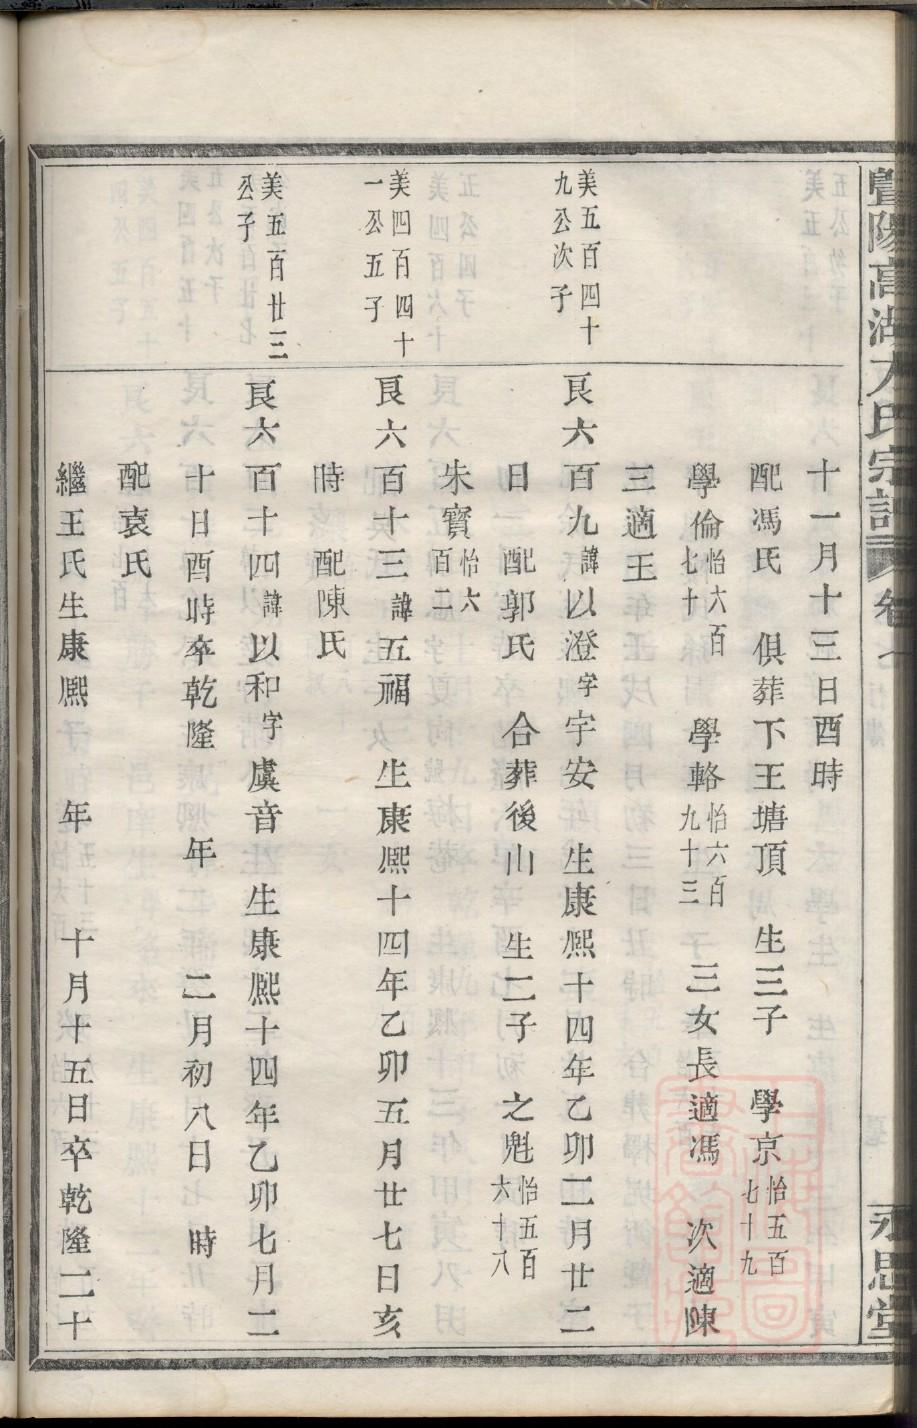 暨陽高湖方氏宗譜 卷七 行傳 永思堂
十一月十三日酉時
配馮氏 俱葬下王塘頂 生三子 學京怡五百七十九
學倫怡六百七十 學輅怡六百九十三 三女長適馮 次適陳
三適王
美五百四十九公次子
艮六百九諱以澄字宇安 生康熈十四年乙卯二月廿二
日 配郭氏 合葬後山 生二子 之魁怡五百六十八
朱寳怡六百二
美四百四十一公五子
艮六百十三諱五福 生康熈十四年乙卯五月廿七日亥
時 配陳氏
美五百廿三公子
艮六百十四諱以和字虞音 生康熈十四年乙卯七月二
十日酉時卒乾隆 年 二月初八日 時
配袁氏
繼王氏生康熈 年 十月十五日卒乾隆二十